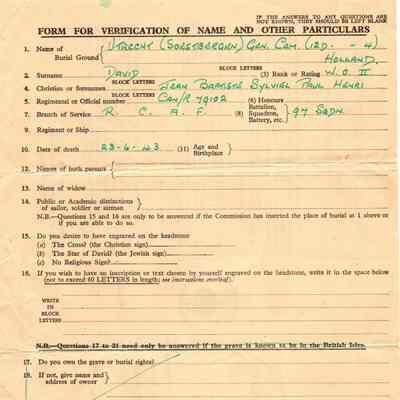 IF THE ANSWERS TO ANY QUESTIONS ARE
NOT KNOWN, THEY SHOULD BE LEFT BLANK
FORM FOR VERIFICATION OF NAME AND OTHER PARTICULARS
1. Name of Burial Ground } UTRECHT (SOESTBERGEN) GEN. CEM. (12D. - 4)
HOLLAND.
BLOCK LETTERS
2. Surname DAVID (3) Rank or Rating W.O. II
BLOCK LETTERS
4. Christian or Forenames JEAN BAPTISTE SYLVIEL PAUL HENRI
BLOCK LETTERS
5. Regimental or Official number CAN/R 79102 (6) Honours
7. Branch of Service R. C. A. F. (8) Battalion, Squadron, Battery, etc. } 97 SQDN.
9. Regiment or Ship
10. Date of death 23-6-43 (11) Age and Birthplace }
12. Names of both parents {
13. Name of widow
14. Public or Academic distinctions of sailor, soldier or airman }
N.B.—Questions 15 and 16 are only to be answered if the Commission has inserted the place of burial at 1 above or
if you are able to do so.
15. Do you desire to have engraved on the headstone
(a) The Cross? (the Christian sign)
(b) The Star of David? (the Jewish sign)
(c) No Religious Sign?
16. If you wish to have an inscription or text chosen by yourself engraved on the headstone, write it in the space below
(not to exceed 60 LETTERS in length; see instructions overleaf).
WRITE
IN
BLOCK
LETTERS
N.B.—Questions 17 to 21 need only be answered if the grave is known to be in the British Isles.
17. Do you own the grave or burial rights?
18. If not, give name and address of owner }